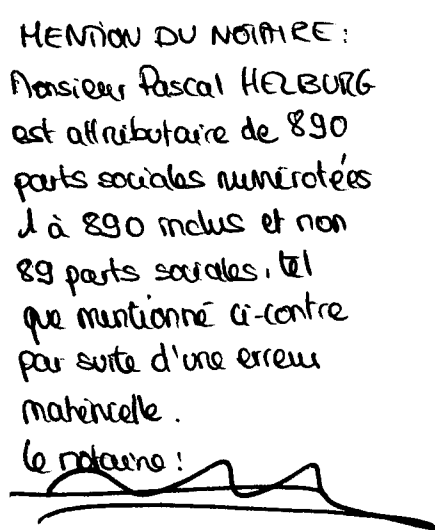 MENTION DU NOTAIRE :
Monsieur Pascal HELBURG
est attributaire de 890
parts sociales numérotées
1 à 890 inclus et non
89 parts sociales, tel
que mentionné ci-contre
par suite d'une erreur
matérielle.
Le notaire :